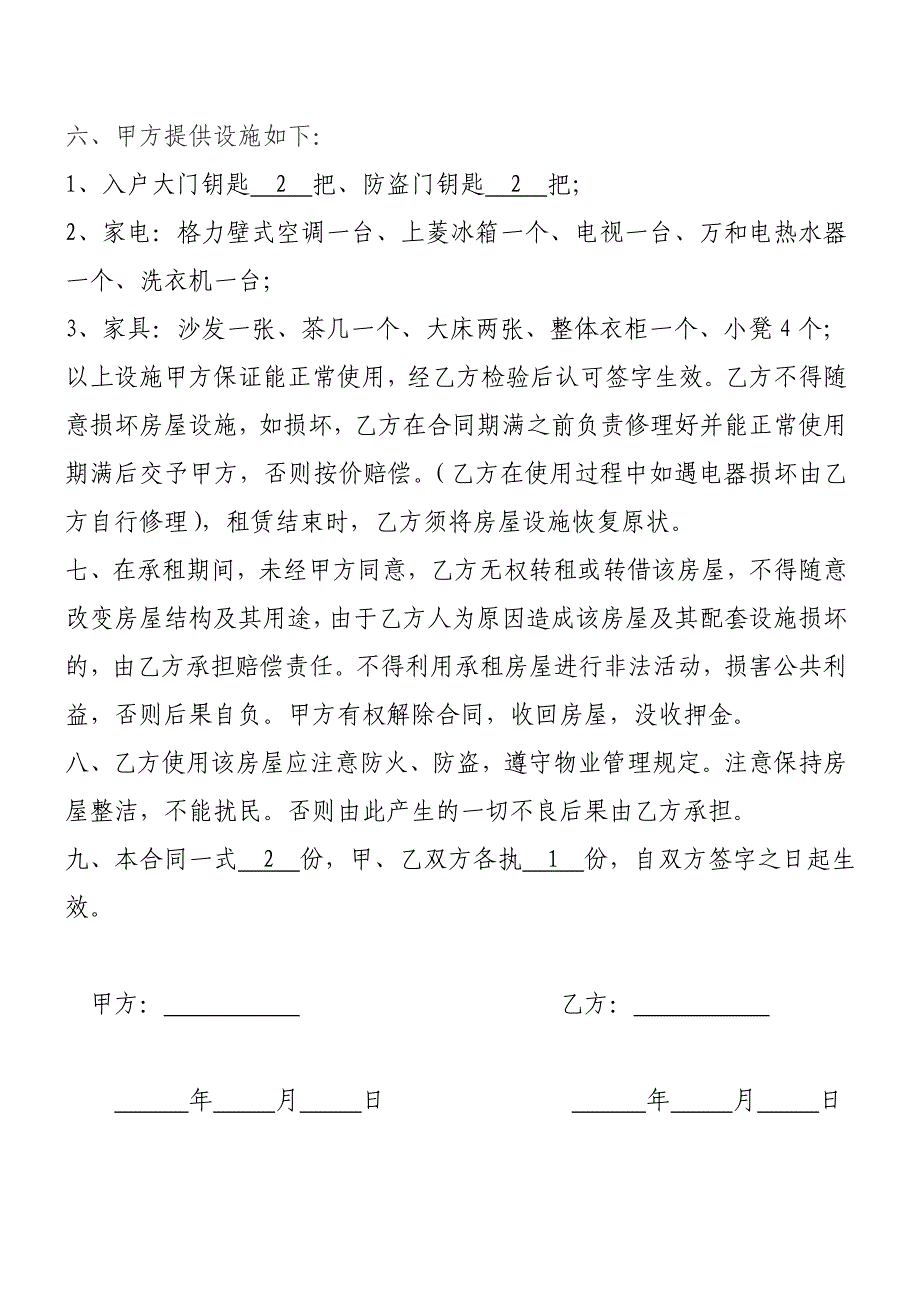 六、甲方提供设施如下：
1、入户大门钥匙__2__把、防盗门钥匙__2__把；
2、家电：格力壁式空调一台、上菱冰箱一个、电视一台、万和电热水器
一个、洗衣机一台；
3、家具：沙发一张、茶几一个、大床两张、整体衣柜一个、小凳4个；
以上设施甲方保证能正常使用，经乙方检验后认可签字生效。乙方不得随
意损坏房屋设施，如损坏，乙方在合同期满之前负责修理好并能正常使用
期满后交予甲方，否则按价赔偿。（乙方在使用过程中如遇电器损坏由乙
方自行修理），租赁结束时，乙方须将房屋设施恢复原状。
七、在承租期间，未经甲方同意，乙方无权转租或转借该房屋，不得随意
改变房屋结构及其用途，由于乙方人为原因造成该房屋及其配套设施损坏
的，由乙方承担赔偿责任。不得利用承租房屋进行非法活动，损害公共利
益，否则后果自负。甲方有权解除合同，收回房屋，没收押金。
八、乙方使用该房屋应注意防火、防盗，遵守物业管理规定。注意保持房
屋整洁，不能扰民。否则由此产生的一切不良后果由乙方承担。
九、本合同一式__2__份，甲、乙双方各执__1__份，自双方签字之日起生
效。
甲方：___________ 乙方：___________
______年_____月_____日 ______年_____月_____日